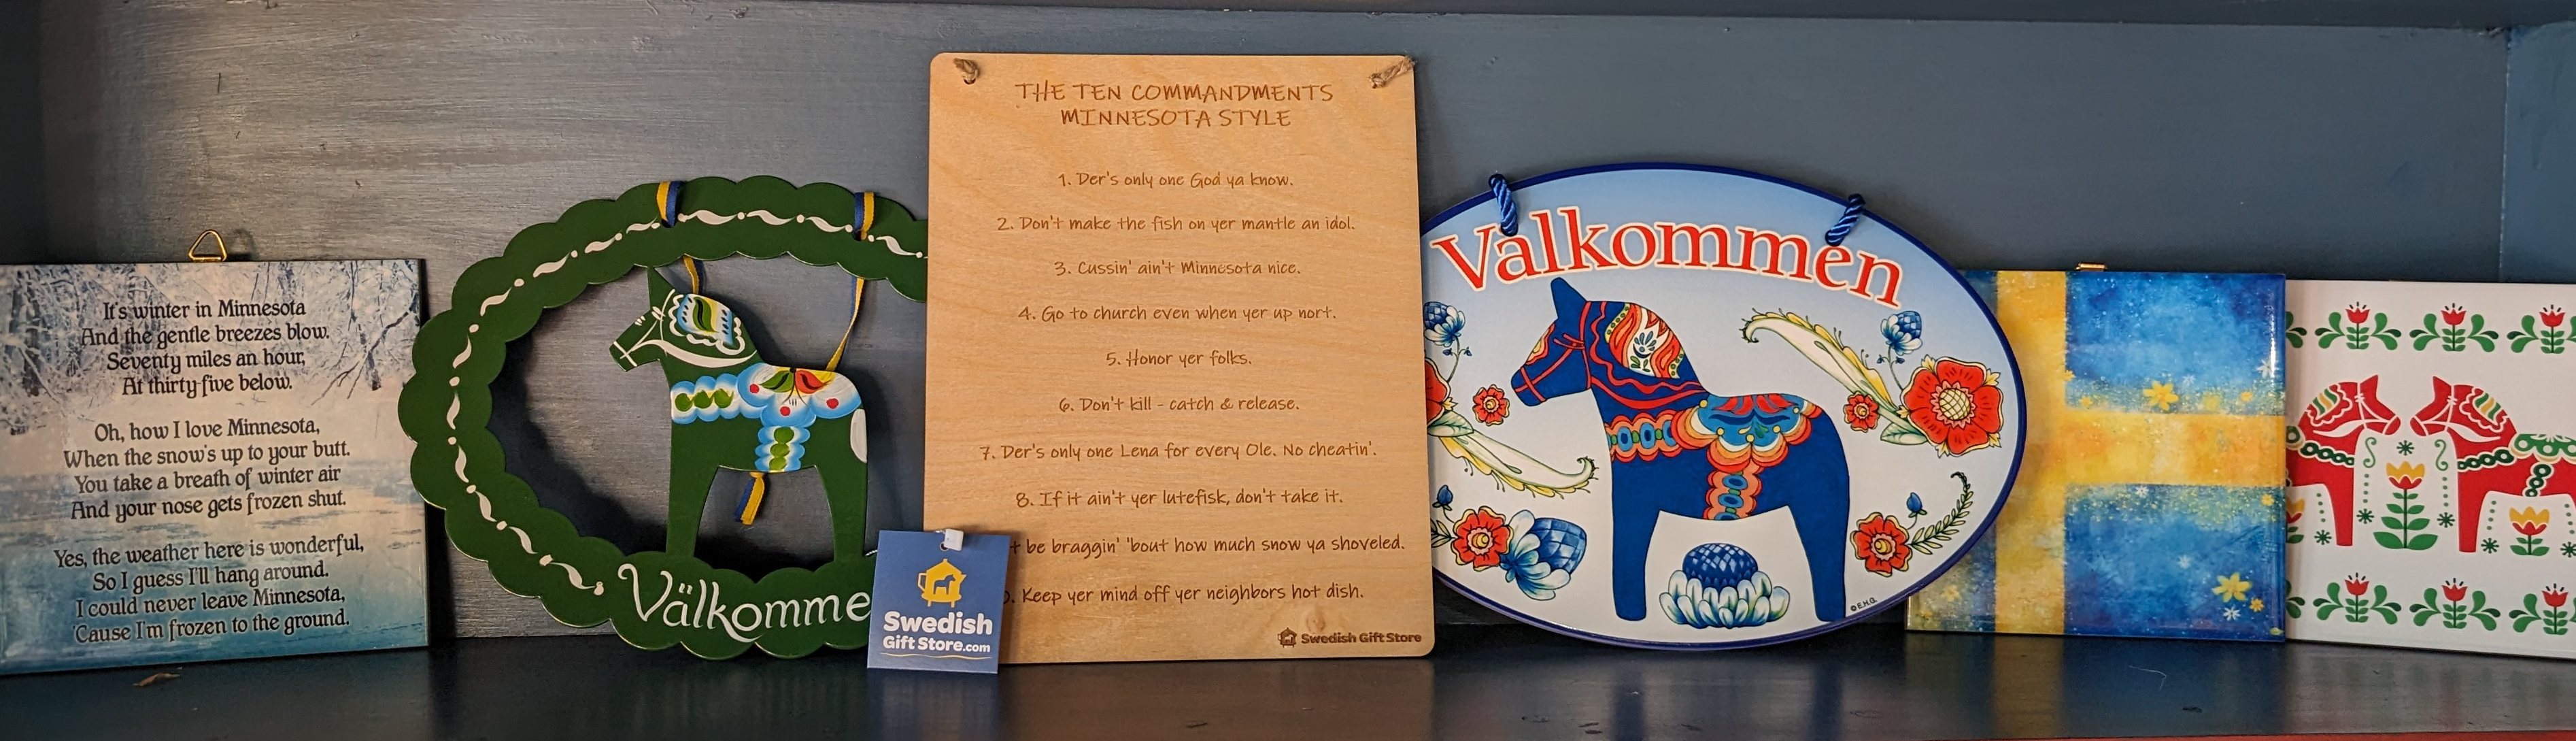 It's winter in Minnesota
And the gentle breezes blow.
Seventy miles an hour,
At thirty five below.
Oh, how I love Minnesota,
When the snow's up to your butt.
You take a breath of winter air
And your nose gets frozen shut.
Yes, the weather here is wonderful,
So I guess I'll hang around.
I could never leave Minnesota,
'Cause I'm frozen to the ground.
Välkomme
Swedish
Gift Store.com
THE TEN COMMANDMENTS
MINNESOTA STYLE
1. Der's only one God ya know.
2. Don't make the fish on yer mantle an idol.
3. Cussin' ain't Minnesota nice.
4. Go to church even when yer up nort.
5. Honor yer folks.
6. Don't kill - catch & release.
7. Der's only one Lena for every Ole. No cheatin'.
8. If it ain't yer lutefisk, don't take it.
t be braggin' 'bout how much snow ya shoveled.
. Keep yer mind off yer neighbors hot dish.
Swedish Gift Store
Valkommen
© E.H.G.